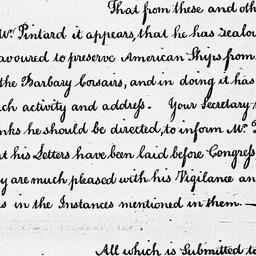 That from these and oth
Mr. Pintard it appears, that he has zealou
avoured to preserve American Ships from
the Barbary Corsairs, and in doing it has
ch activity and address. Your Secretary
nks he should be directed, to inform Mr.
t his Letters have been laid before Congress
y are much pleased with his Vigilance an
s in the Instances mentioned in them —
All which is Submitted to